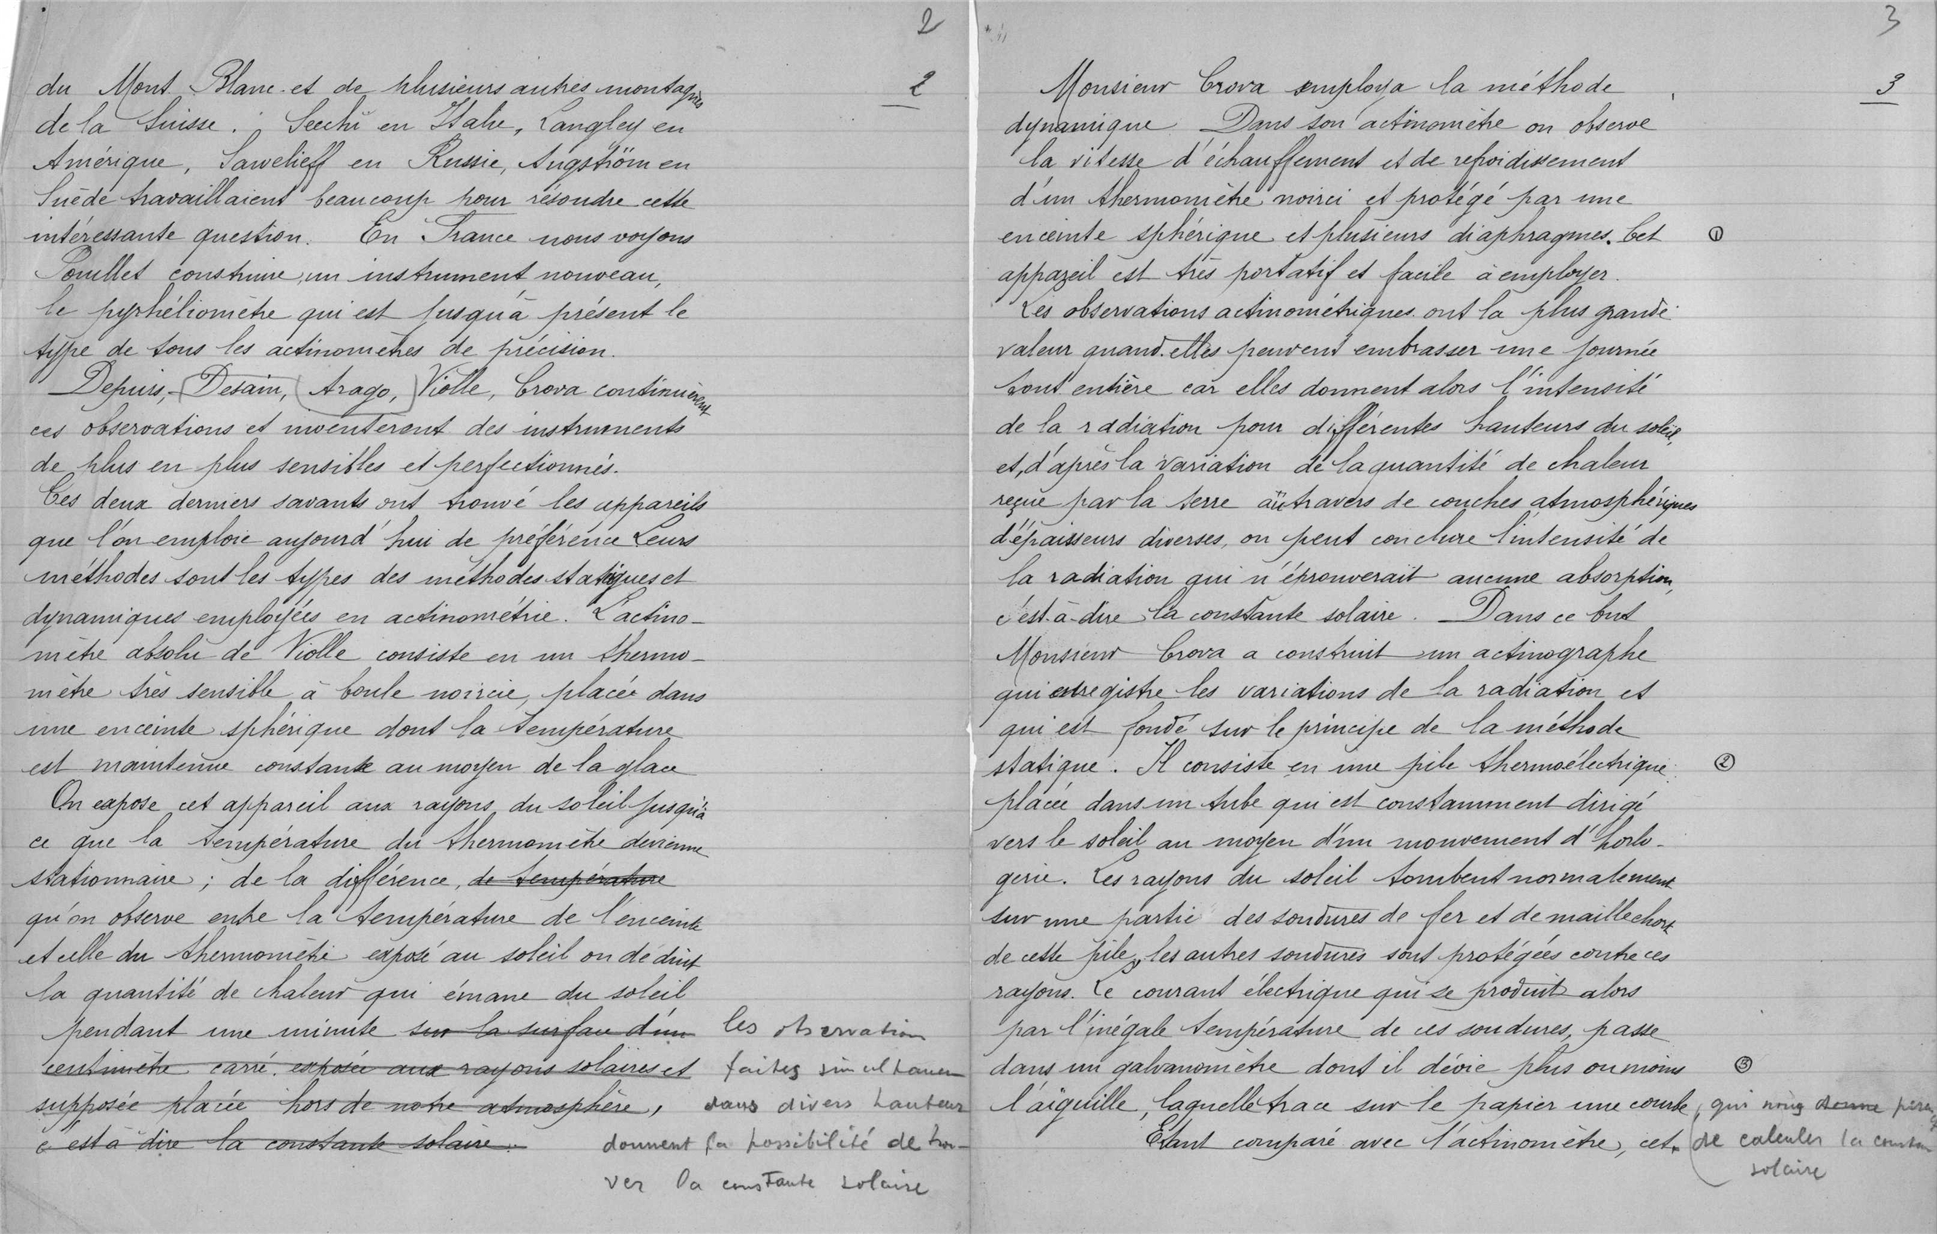 2
2
du Mont Blanc et de plusieurs autres montagnes
de la Suisse. Secchi en Italie, Langley en
Amérique, Sawelieff en Russie, Angström en
Suède travaillaient beaucoup pour résoudre cette
intéressante question. En France nous voyons
Pouillet construire un instrument nouveau,
le pyrhéliomètre qui est jusqu'à présent le
type de tous les actinomètres de précision.
Depuis, Desain, Arago, Violle, Crova continuèrent
ces observations et inventèrent des instruments
de plus en plus sensibles et perfectionnés.
Ces deux derniers savants ont trouvé les appareils
que l'on emploie aujourd'hui de préférence Leurs
méthodes sont les types des méthodes statiques et
dynamiques employées en actinométrie. L'actino-
mètre absolu de Violle consiste en un thermo-
mètre très sensible à boule noircie, placée dans
une enceinte sphérique dont la température
est maintenue constante au moyen de la glace
On expose cet appareil aux rayons du soleil jusqu'à
ce que la température du thermomètre devienne
stationnaire; de la différence, de température
qu'on observe entre la température de l'enceinte
et celle du thermomètre exposé au soleil on déduit
la quantité de chaleur qui émane du soleil
pendant une minute sur la surface d'un
centimètre carré exposée aux rayons solaires et
supposée placée hors de notre atmosphère,
c'est à dire la constante solaire.
les observation
faites simultanem
dans divers hauteur
donnent la possibilité de trou-
ver la constante solaire
3
3
Monsieur Crova employa la méthode
dynamique Dans son actinomètre on observe
la vitesse d'échauffement et de refroidissement
d'un thermomètre noirci et protégé par une
enceinte sphérique et plusieurs diaphragmes. Cet ①
appareil est très portatif et facile à employer.
Les observations actinométriques ont la plus grande
valeur quand elles peuvent embrasser une journée
tout entière car elles donnent alors l'intensité
de la radiation pour différentes hauteurs du soleil,
et, d'après la variation de la quantité de chaleur
reçue par la terre au travers de couches atmosphériques
d'épaisseurs diverses, on peut conclure l'intensité de
la radiation qui n'éprouverait aucune absorption,
c'est-à-dire la constante solaire. Dans ce but
Monsieur Crova a construit un actinographe
qui enregistre les variations de la radiation et
qui est fondé sur le principe de la méthode
statique. Il consiste en une pile thermoélectrique ②
placée dans un tube qui est constamment dirigé
vers le soleil au moyen d'un mouvement d'horlo-
gerie. Les rayons du soleil tombent normalement
sur une partie des soudures de fer et de maillechort
de cette pile, les autres soudures sont protégées contre ces
rayons. Le courant électrique qui se produit alors
par l'inégale température de ces soudures, passe
dans un galvanomètre dont il dévie plus ou moins ③
l'aiguille, laquelle trace sur le papier une courbe, qui nous donne
de calculer la constan
solaire
Étant comparé avec l'actinomètre, cet